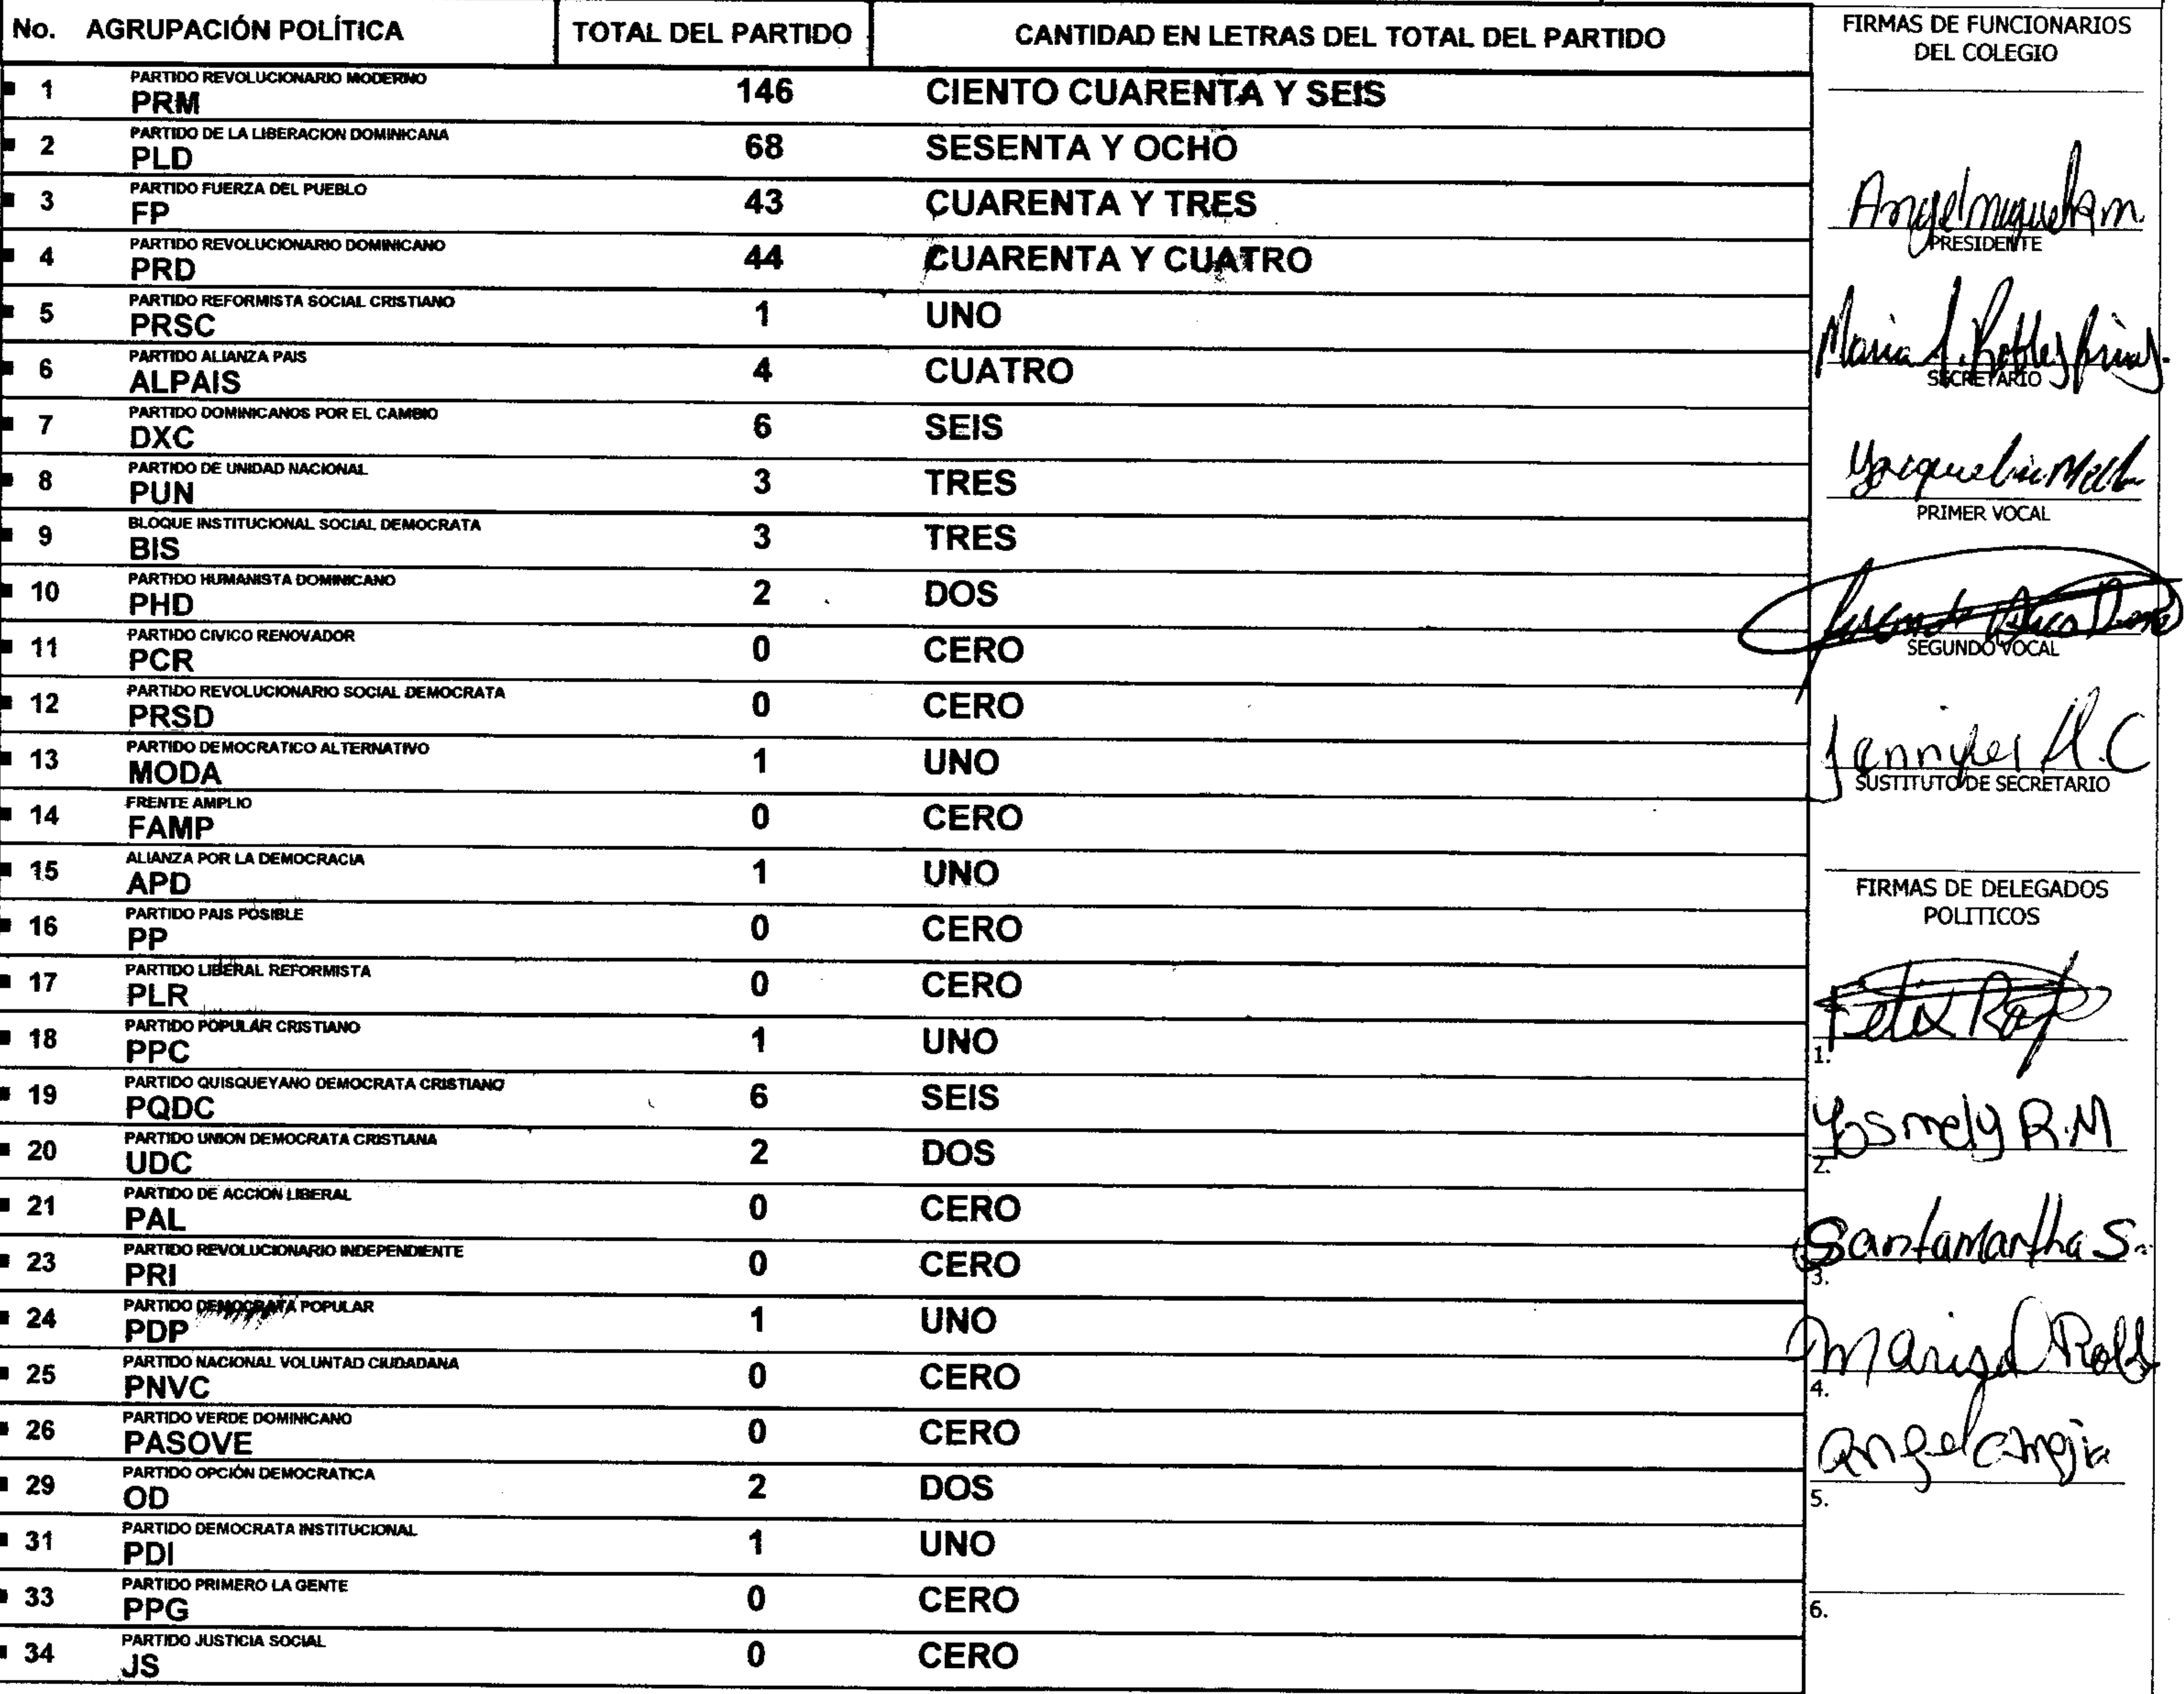 No. AGRUPACIÓN POLÍTICA TOTAL DEL PARTIDO CANTIDAD EN LETRAS DEL TOTAL DEL PARTIDO
PARTIDO REVOLUCIONARIO MODERNO
1 PRM 146 CIENTO CUARENTA Y SEIS
PARTIDO DE LA LIBERACION DOMINICANA
2 PLD 68 SESENTA Y OCHO
PARTIDO FUERZA DEL PUEBLO
3 FP 43 CUARENTA Y TRES
PARTIDO REVOLUCIONARIO DOMINICANO
4 PRD 44 CUARENTA Y CUATRO
PARTIDO REFORMISTA SOCIAL CRISTIANO
5 PRSC 1 UNO
PARTIDO ALIANZA PAIS
6 ALPAIS 4 CUATRO
PARTIDO DOMINICANOS POR EL CAMBIO
7 DXC 6 SEIS
PARTIDO DE UNIDAD NACIONAL
8 PUN 3 TRES
BLOQUE INSTITUCIONAL SOCIAL DEMOCRATA
9 BIS 3 TRES
PARTIDO HUMANISTA DOMINICANO
10 PHD 2 DOS
PARTIDO CIVICO RENOVADOR
11 PCR 0 CERO
PARTIDO REVOLUCIONARIO SOCIAL DEMOCRATA
12 PRSD 0 CERO
PARTIDO DEMOCRATICO ALTERNATIVO
13 MODA 1 UNO
FRENTE AMPLIO
14 FAMP 0 CERO
ALIANZA POR LA DEMOCRACIA
15 APD 1 UNO
PARTIDO PAIS POSIBLE
16 PP 0 CERO
PARTIDO LIBERAL REFORMISTA
17 PLR 0 CERO
PARTIDO POPULAR CRISTIANO
18 PPC 1 UNO
PARTIDO QUISQUEYANO DEMOCRATA CRISTIANO
19 PQDC 6 SEIS
PARTIDO UNION DEMOCRATA CRISTIANA
20 UDC 2 DOS
PARTIDO DE ACCION LIBERAL
21 PAL 0 CERO
PARTIDO REVOLUCIONARIO INDEPENDIENTE
23 PRI 0 CERO
PARTIDO DEMOCRATA POPULAR
24 PDP 1 UNO
PARTIDO NACIONAL VOLUNTAD CIUDADANA
25 PNVC 0 CERO
PARTIDO VERDE DOMINICANO
26 PASOVE 0 CERO
PARTIDO OPCIÓN DEMOCRATICA
29 OD 2 DOS
PARTIDO DEMOCRATA INSTITUCIONAL
31 PDI 1 UNO
PARTIDO PRIMERO LA GENTE
33 PPG 0 CERO
PARTIDO JUSTICIA SOCIAL
34 JS 0 CERO
FIRMAS DE FUNCIONARIOS
DEL COLEGIO
PRESIDENTE
Maria Robles
SECRETARIO
PRIMER VOCAL
SEGUNDO VOCAL
Jennifer
SUSTITUTO DE SECRETARIO
FIRMAS DE DELEGADOS
POLITICOS
Felix
1.
Yosmely R.M
2.
Santamartha S.
3.
4.
Angel
5.
6.